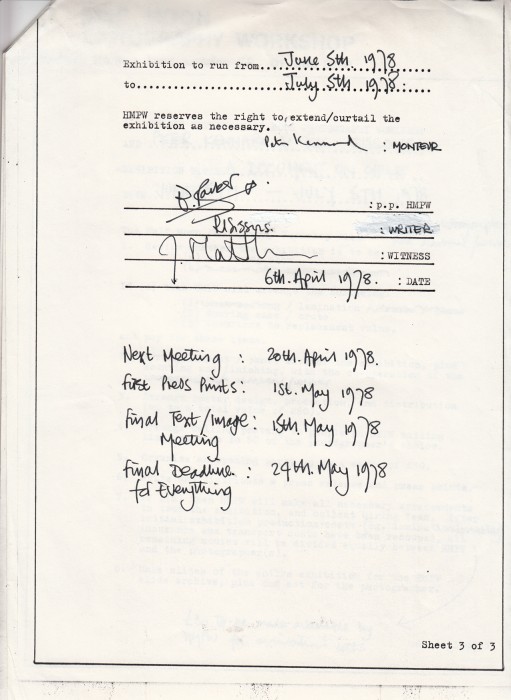 Exhibition to run from...June 5th. 1978......
to....................July 5th. 1978.:....
HMPW reserves the right to extend/curtail the
exhibition as necessary.
Peter Kennard : MONTEUR
:p.p. HMPW
:WRITER
J. Matth :WITNESS
6th. April 1978. : DATE
Next Meeting : 20th. April 1978.
First Press Prints: 1st. May 1978
Final Text/Image: 15th. May 1978
Meeting
Final Deadline : 24th. May 1978
for Everything
Sheet 3 of 3